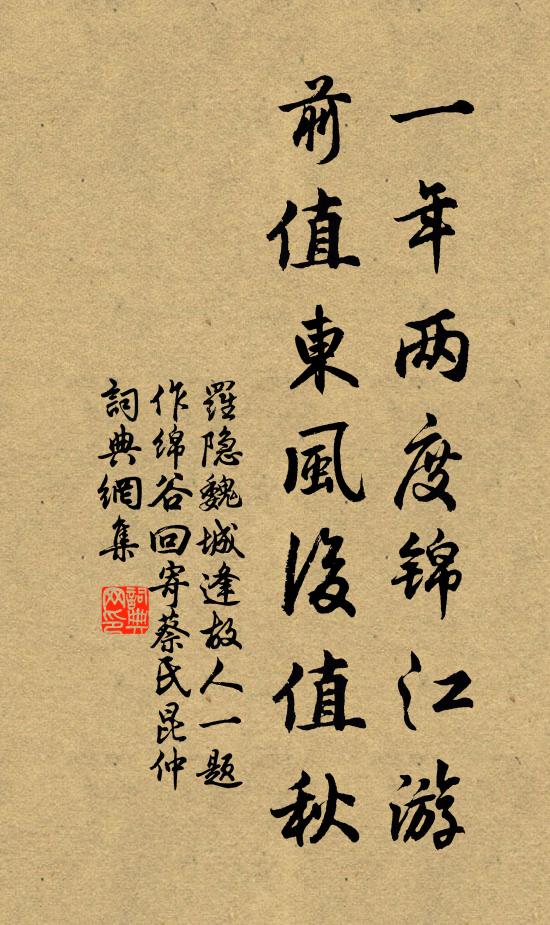 一年两度锦江游
前值東風後值秋
羅隐魏城逢故人一题
作绵谷回寄蔡氏昆仲
詞典網集
詞典网印